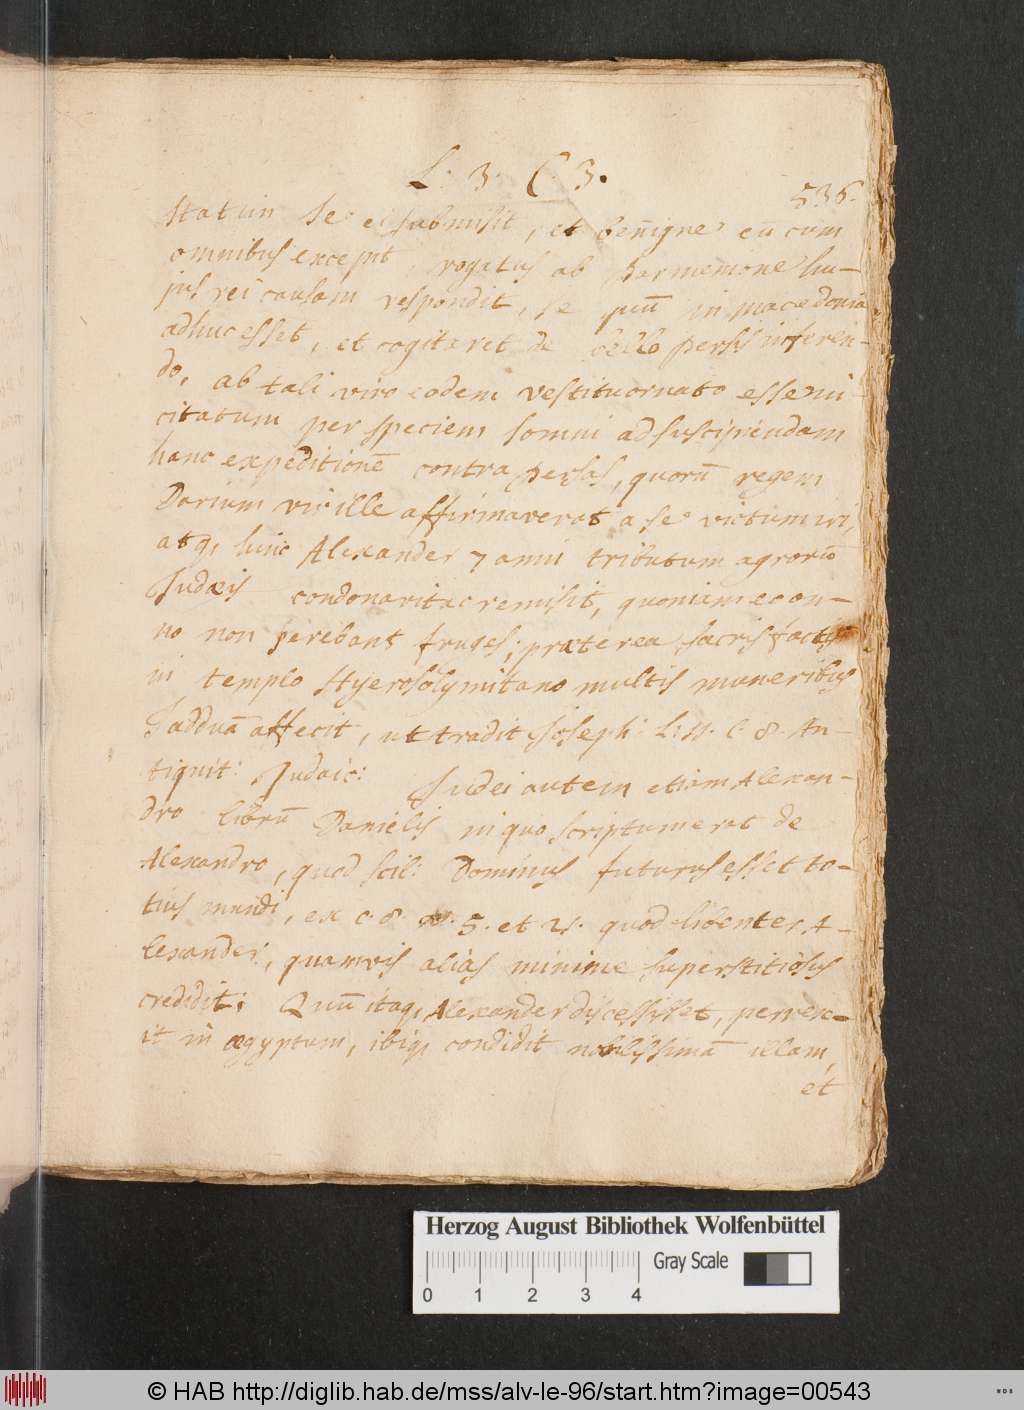 L. 3. C. 3.
536.
statim se ei submisit, et benigne eū cum
omnibus excepit, rogatus ab Parmenione hu-
jus rei causam respondit, se quū in macedonia
adhuc esset, et cogitaret de bello persis inferen-
do, ab tali viro eodem vestitu ornato esse in-
citatum per speciem somni ad suscipiendam
hanc expeditionē contra Persas, quorū regem
Darium vir ille affirmaverat a se victum iri,
atq, hinc Alexander 7 anni tributum agrorū
Judæis condonavit ac remisit, quoniam eo an-
no non serebant fruges; præterea sacris factis
in templo Hyerosolymitano multis muneribus
Jadduā affecit, ut tradit Joseph: L. 11. C. 8. An-
tiquit: Judaic: Judei autem etiam Alexan-
dro librū Danielis in quo scriptum erat de
Alexandro, quod scil: Dominus futurus esset to-
tius mundi, ex c. 8. v. 5. et 21. quod libenter A-
lexander, quamvis alias minime superstitiosus
credidit. Quū itaq, Alexander discessisset, perrex-
it in ægyptum, ibiq, condidit nobilissimā illam,
et
Herzog August Bibliothek Wolfenbüttel
Gray Scale
0 1 2 3 4
© HAB http://diglib.hab.de/mss/alv-le-96/start.htm?image=00543